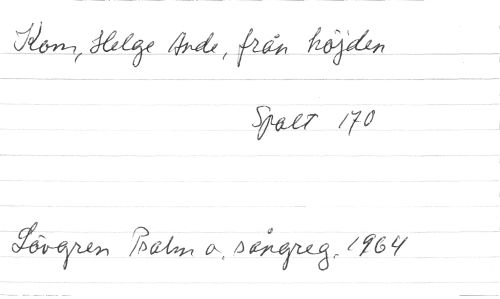 Kom, Helge Ande, från höjden
Spalt 170
Lövgren Psalm o. sångreg. 1964